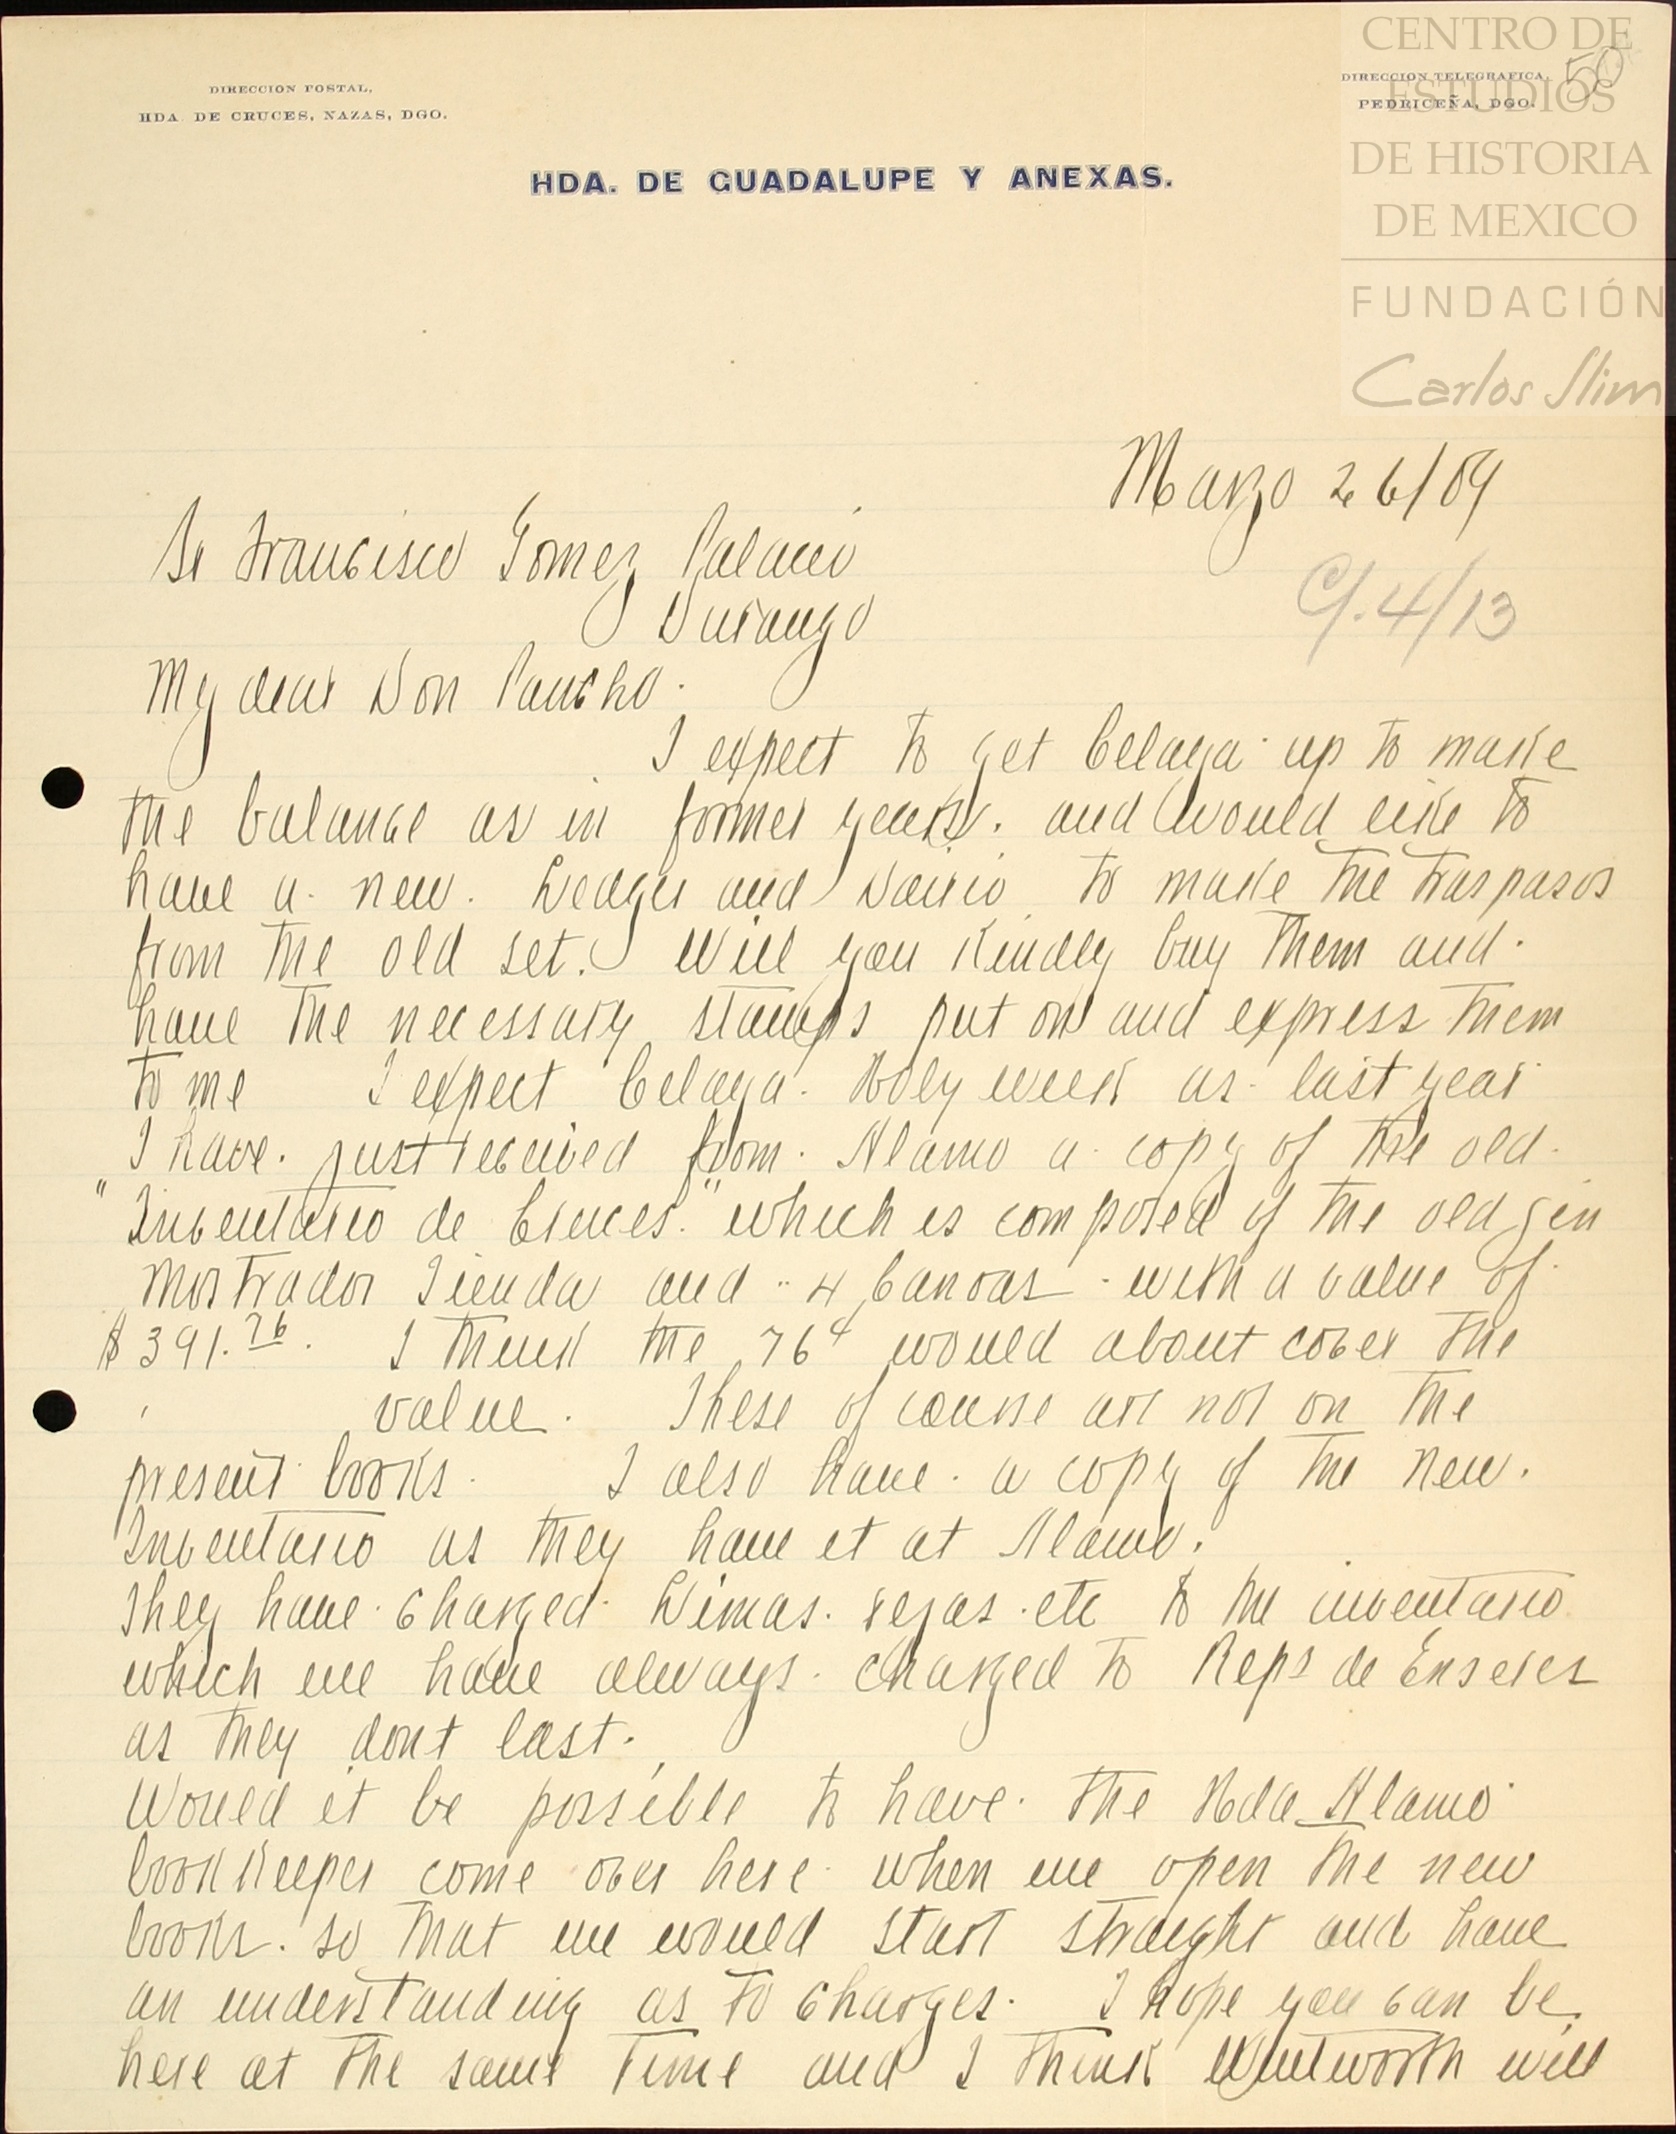 DIRECCION POSTAL,
HDA. DE CRUCES, NAZAS, DGO.
DIRECCION TELEGRAFICA
PEDRICEÑA, DGO.
50
CENTRO DE
ESTUDIOS
DE HISTORIA
DE MEXICO
FUNDACIÓN
Carlos Slim
HDA. DE GUADALUPE Y ANEXAS.
Marzo 26/09
C/. 4/13
Sr Francisco Gomez Palacio
Durango
My dear Don Pancho.
I expect to get Celaya up to make
the balance as in former years. and would like to
have a new. Ledger and Dairio to make the traspasos
from the old set. Will you kindly buy them and.
have the necessary stamps put on and express them
to me I expect Celaya. Holy week as last year
I have. just received from. Alamo a copy of the old.
"Inventario de Cruces." which is composed of the old gin
Mostrador Tienda and 4 Canoas with a value of
$391.76. I think the 76¢ would about cover the
value. These of course are not on the
present books. I also have. a copy of the new.
Inventario as they have it at Alamo.
They have charged Limas. rejas. etc to the inventario
which we have always. charged to Reps de Enseres
as they dont last.
Would it be possible to have. the Hda Alamo
bookkeeper come over here when we open the new
books. so that we would start straight and have
an understanding as to charges. I hope you can be
here at the same time and I think Wentworth will